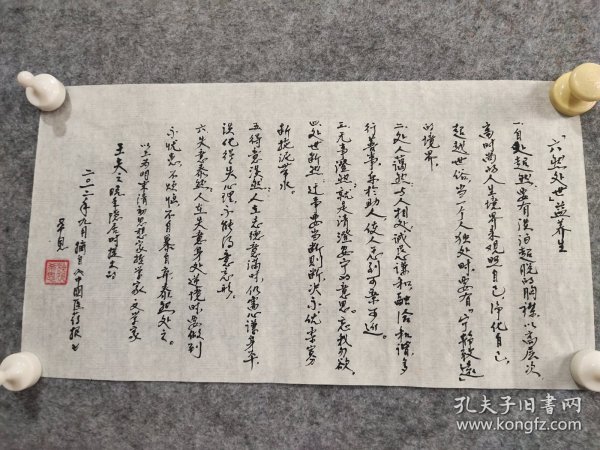 “六然处世”益养生
一、自处超然。要有淡泊超脱的胸襟，以高层次、
高时尚的人生境界来观照自己，净化自己，
超越世俗，当一个人独处时，要有“宁静致远”
的境界。
二、处人蔼然。与人相处诚恳谦和，融洽和谐，多
行善事，乐于助人，使人感到可亲可近。
三、无事澄然。就是清澄安宁的意思。忘我勿欲。
四、处世断然。过事要当断则断，决不优柔寡
断，拖泥带水。
五、得意淡然。人在志得意满时，仍需心谦身平，
淡化得失心理，不能得意忘形。
六、失意泰然。人在失意身处逆境时，要做到
不忧患，不烦恼，不自暴自弃，泰然处之。
以上为明末清初思想家、哲学家、文学家
王夫之晚年隐居时提出的
二〇一二年九月摘自《中国医药报》
早见
孔夫子旧书网
kongfz.com